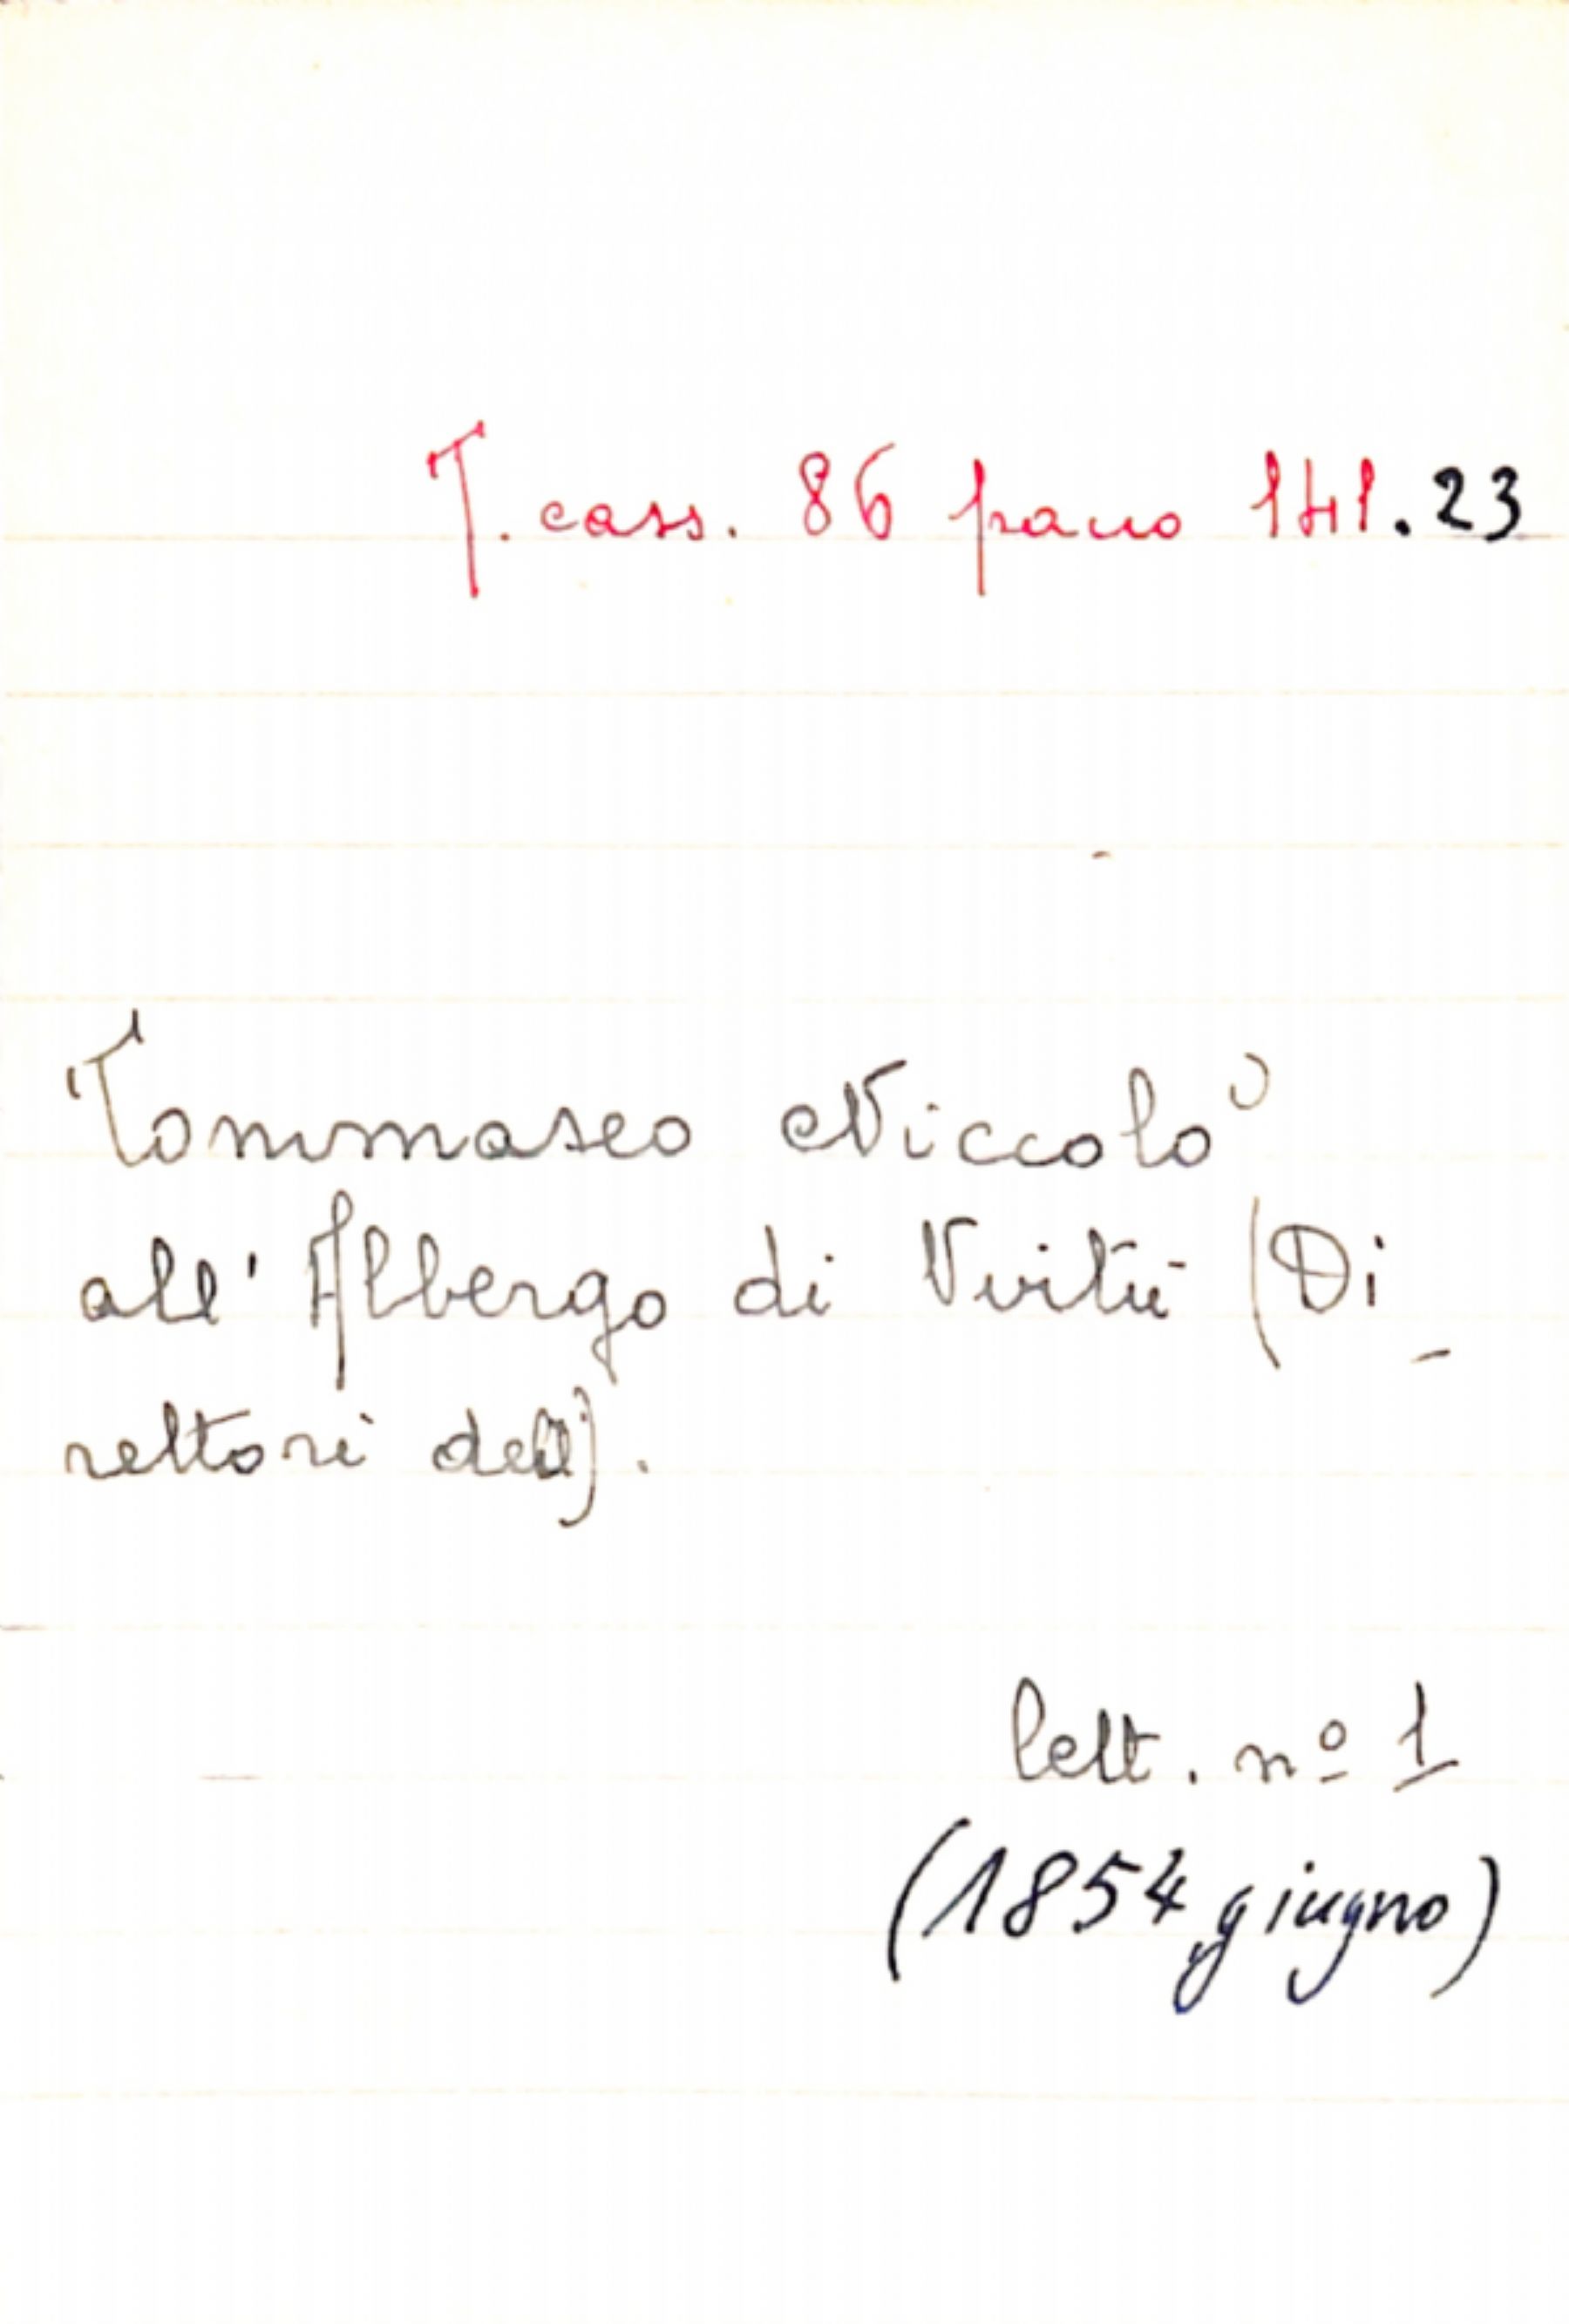 T. cass. 86 pacco 141.23
Tommaseo Niccolò
all' Albergo di Virtù (Di_
rettori dell').
lett. nº 1
(1854 giugno)